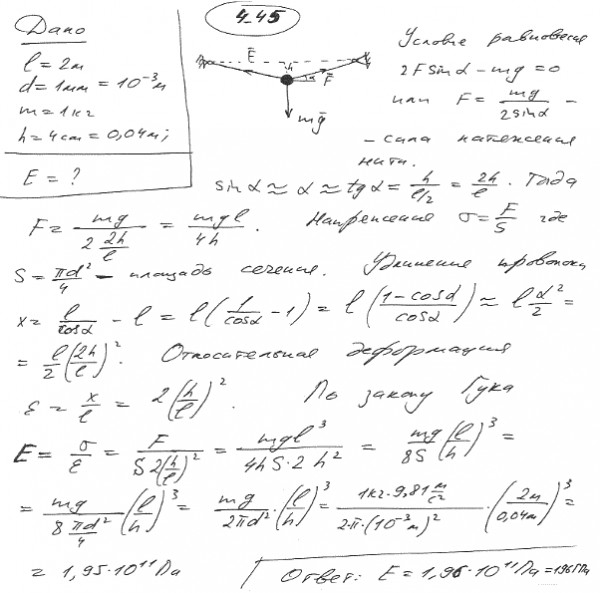 4-45
Дано
l = 2м
d = 1мм = 10⁻³м
m = 1кг
h = 4см = 0,04м;
E = ?
F̄ h α F̄
mḡ
Условие равновесия
2F sinα - mg = 0
или F = mg/(2 sinα) -
- сила натяжения
нити.
sinα ≈ α ≈ tgα = h/(l/2) = 2h/l. Тогда
F = mg/(2 2h/l) = mgl/4h. Напряжение σ = F/S где
S = πd²/4 - площадь сечения. Удлинение проволоки
x = l/cosα - l = l(1/cosα - 1) = l((1-cosα)/cosα) ≈ l α²/2 =
= l/2 (2h/l)². Относительная деформация
ε = x/l = 2(h/l)². По закону Гука
E = σ/ε = F/(S2(h/l)²) = mgl³/(4hS·2h²) = mg/8S (l/h)³ =
= mg/(8 πd²/4) (l/h)³ = mg/2πd² · (l/h)³ = 1кг·9,81 м/с²/(2·π·(10⁻³м)²) · (2м/0,04м)³ =
= 1,95·10¹¹Па
Ответ: E = 1,96·10¹¹Па = 196ГПа